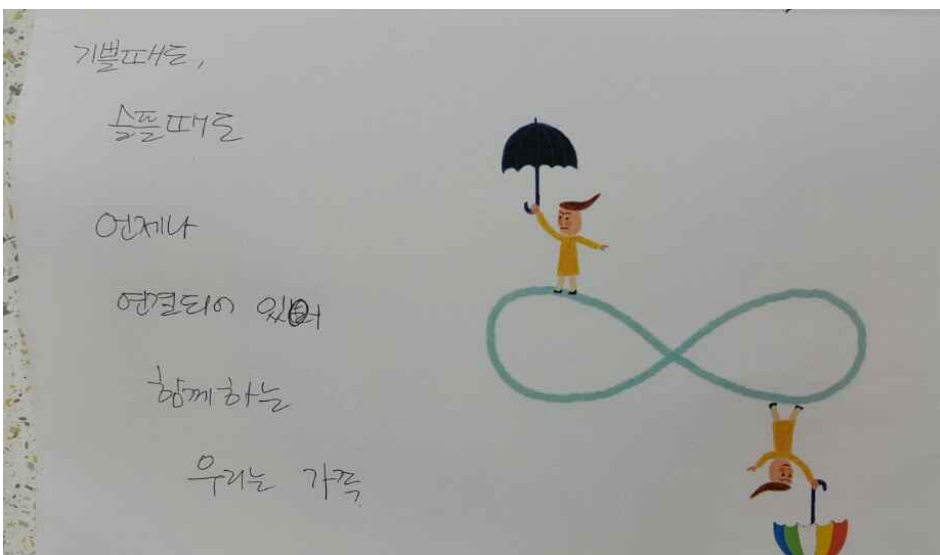 기쁠때도,
슬플때도
언제나
연결되어 있어
함께하는
우리는 가족